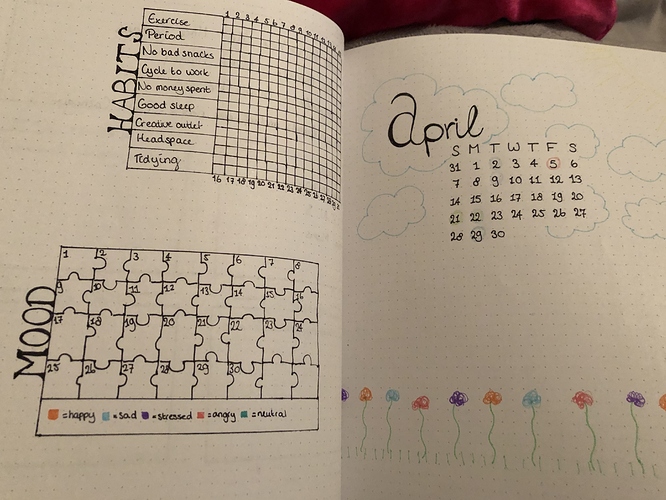 HABITS
1 2 3 4 5 6 7 8 9 10 11 12 13
Exercise
Period
No bad snacks
Cycle to work
No money spent
Good sleep
Creative outlet
Headspace
Tidying
16 17 18 19 20 21 22 23 24 25 26 27 28 29
MOOD
1 2 3 4 5 6 7 8
9 10 11 12 13 14 15 16
17 18 19 20 21 22 23 24
25 26 27 28 29 30
=happy =sad =stressed =angry =neutral
April
S M T W T F S
31 1 2 3 4 5 6
7 8 9 10 11 12 13
14 15 16 17 18 19 20
21 22 23 24 25 26 27
28 29 30